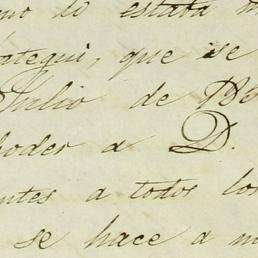 mo lo estaba
ategui, que se
Julio de
poder a D.
ntes a todos los
se hace a m